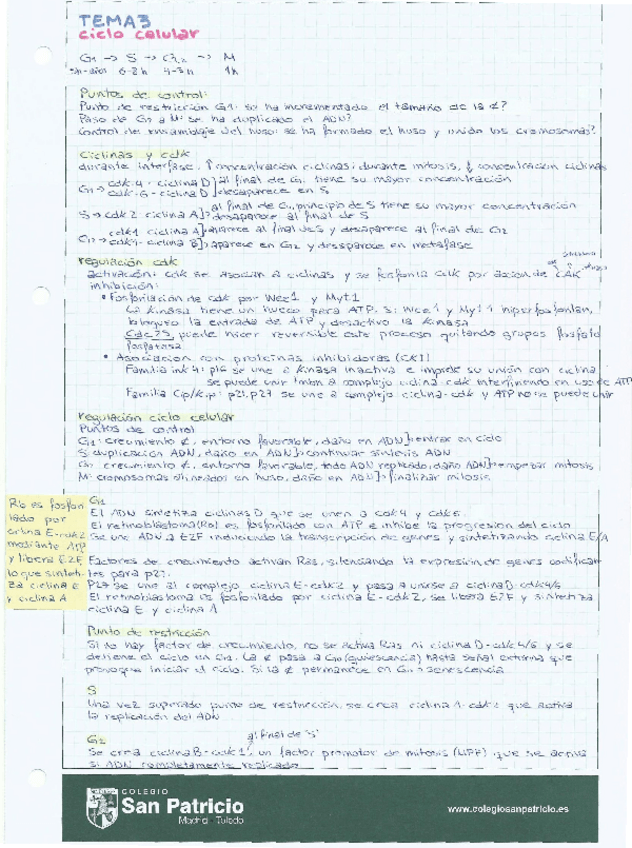 TEMA3
ciclo celular
G1 -> S -> G2 -> M
5h-días 6-8h 4-3h 1h
Puntos de control:
Punto de restricción G1: se ha incrementado el tamaño de la ¢?
Paso de G2 a M: se ha duplicado el ADN?
Control de ensamblaje del huso: se ha formado el huso y unido los cromosomas?
Ciclinas y cdk
durante interfase, ↑ concentración ciclinas; durante mitosis, ↓ concentración ciclinas
G1 -> cdk-4 - ciclina D] al final de G1 tiene su mayor concentración
cdk-6 - ciclina D] desaparece en S
al final de G1, principio de S tiene su mayor concentración
S -> cdk2 ciclina A] desaparece al final de S
cdk1 ciclina A] aparece al final de S y desaparece al final de G2
G2 -> cdk1 - ciclina B] aparece en G2 y desaparece en metafase
regulación cdk
activación: cdk se asocian a ciclinas y se fosforila cdk por acción de CAK
inhibición:
• Fosforilación de cdk por Wee1 y Myt1
La kinasa tiene un hueco para ATP. Si Wee1 y Myt1 hiperfosforilan,
bloquean la entrada de ATP y desactiva la kinasa
Cdc25 puede hacer reversible este proceso quitando grupos fosfato
fosfatasa
• Asociación con proteínas inhibidoras (CKI)
Familia ink4: p16 se une a kinasa inactiva e impide su unión con ciclina
se puede unir tmbn a complejo ciclina-cdk interfiriendo en uso de ATP
Familia Cip/Kip: p21, p27 se une a complejo ciclina-cdk y ATP no se puede unir
regulación ciclo celular
Puntos de control
G1: crecimiento ¢, entorno favorable, daño en ADN] entrar en ciclo
S: duplicación ADN, daño en ADN] continuar síntesis ADN
G2: crecimiento ¢, entorno favorable, todo ADN replicado, daño ADN] empezar mitosis
M: cromosomas alineados en huso, daño en ADN] finalizar mitosis
G1
El ADN sintetiza ciclinas D que se unen a cdk4 y cdk6.
El retinoblastoma (Rb) es fosforilado con ATP e inhibe la progresión del ciclo
Se une ADN a E2F induciendo la transcripción de genes y sintetizando ciclina E/A
Rb es fosforilado por
ciclina E-cdk2
mediante ATP
y libera E2F
lo que sintetiza ciclina E
y ciclina A
Factores de crecimiento activan Ras, silenciando la expresión de genes codificantes para p27.
P27 se une al complejo ciclina E-cdk2 y pasa a unirse a ciclina D-cdk4/6
El retinoblastoma es fosforilado por ciclina E-cdk2, se libera E2F y sintetiza
ciclina E y ciclina A
Punto de restricción
Si no hay factor de crecimiento, no se activa Ras ni ciclina D-cdk4/6 y se
detiene el ciclo en G1. La ¢ pasa a G0 (quiescencia) hasta señal externa que
provoque iniciar el ciclo. Si la ¢ permanece en G0 -> senescencia
S
Una vez superado punto de restricción, se crea ciclina A-cdk2 que activa
la replicación del ADN
G2 al final de S
Se crea ciclina B-cdk1, un factor promotor de mitosis (MPF) que se activa
si ADN completamente replicado
COLEGIO
San Patricio
Madrid - Toledo
www.colegiosanpatricio.es